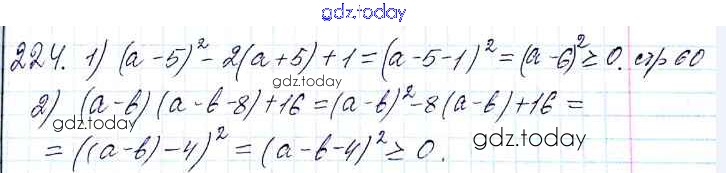 gdz.today
224. 1) (a-5)² - 2(a+5) + 1 = (a-5-1)² = (a-6)² ≥ 0. стр 60
gdz.today
2) (a-b)(a-b-8)+16 = (a-b)² - 8(a-b)+16 =
gdz.today
gdz.today
= ((a-b)-4)² = (a-b-4)² ≥ 0.